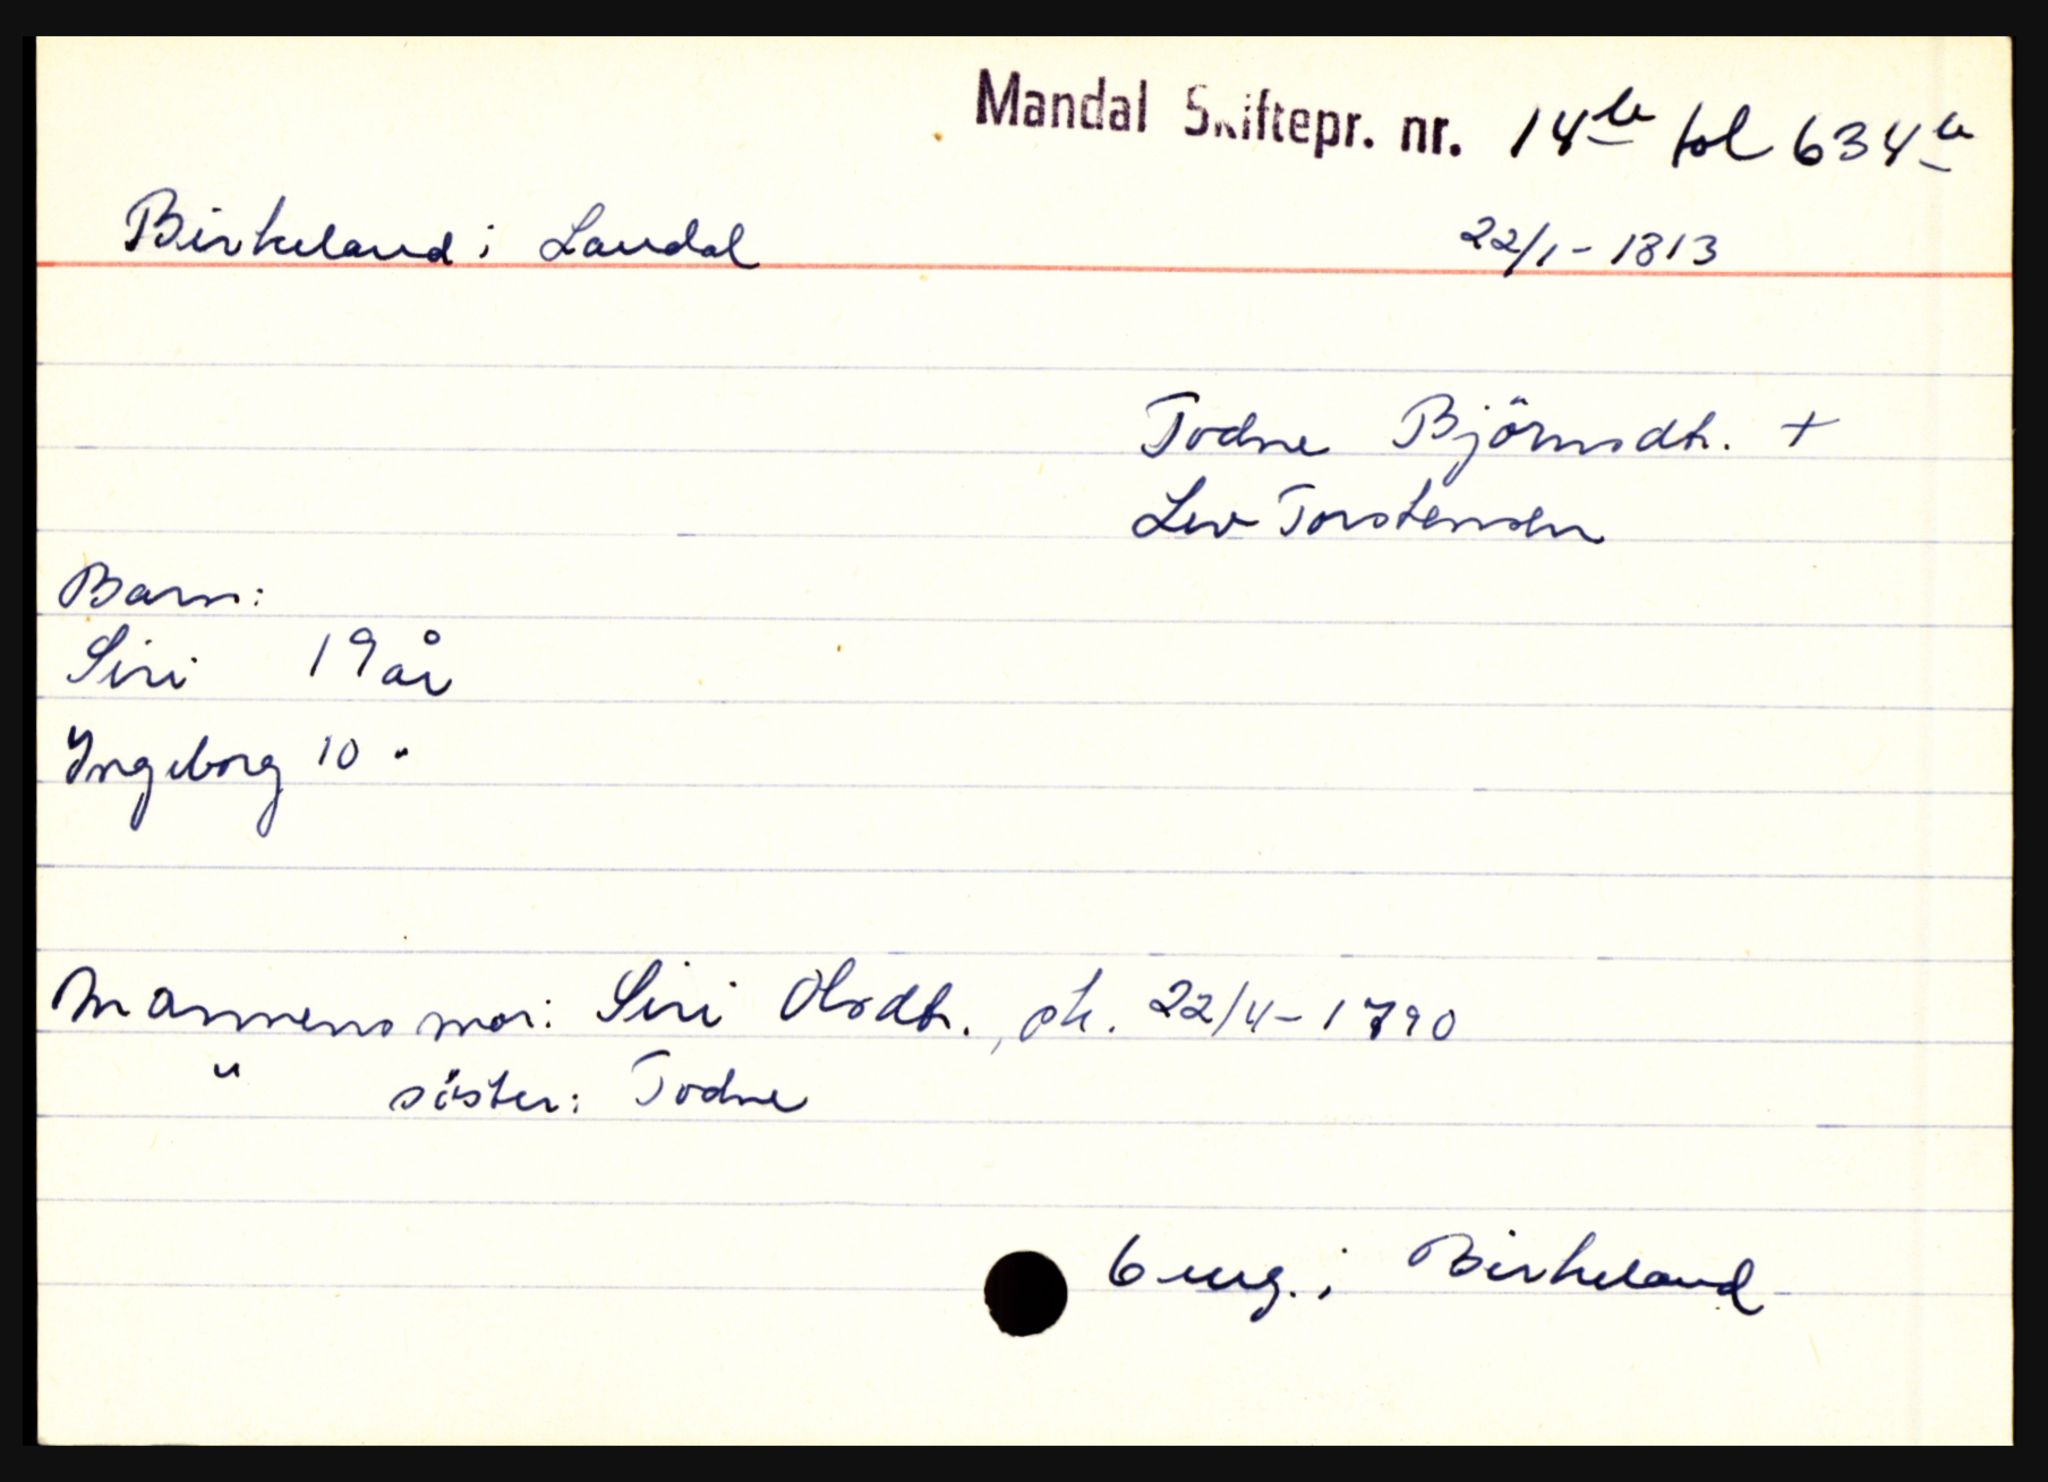 Mandal Skiftepr. nr. 14b fol 634a
Birkeland i Laudal 22/1-1813
Todne Björnsdtr. +
Lev Torstensen
Barn:
Siri 19 år
Ingeborg 10 "
Mannens mor: Siri Olsdtr., sk. 22/4-1790
" söster: Todne
6 eng. i Birkeland